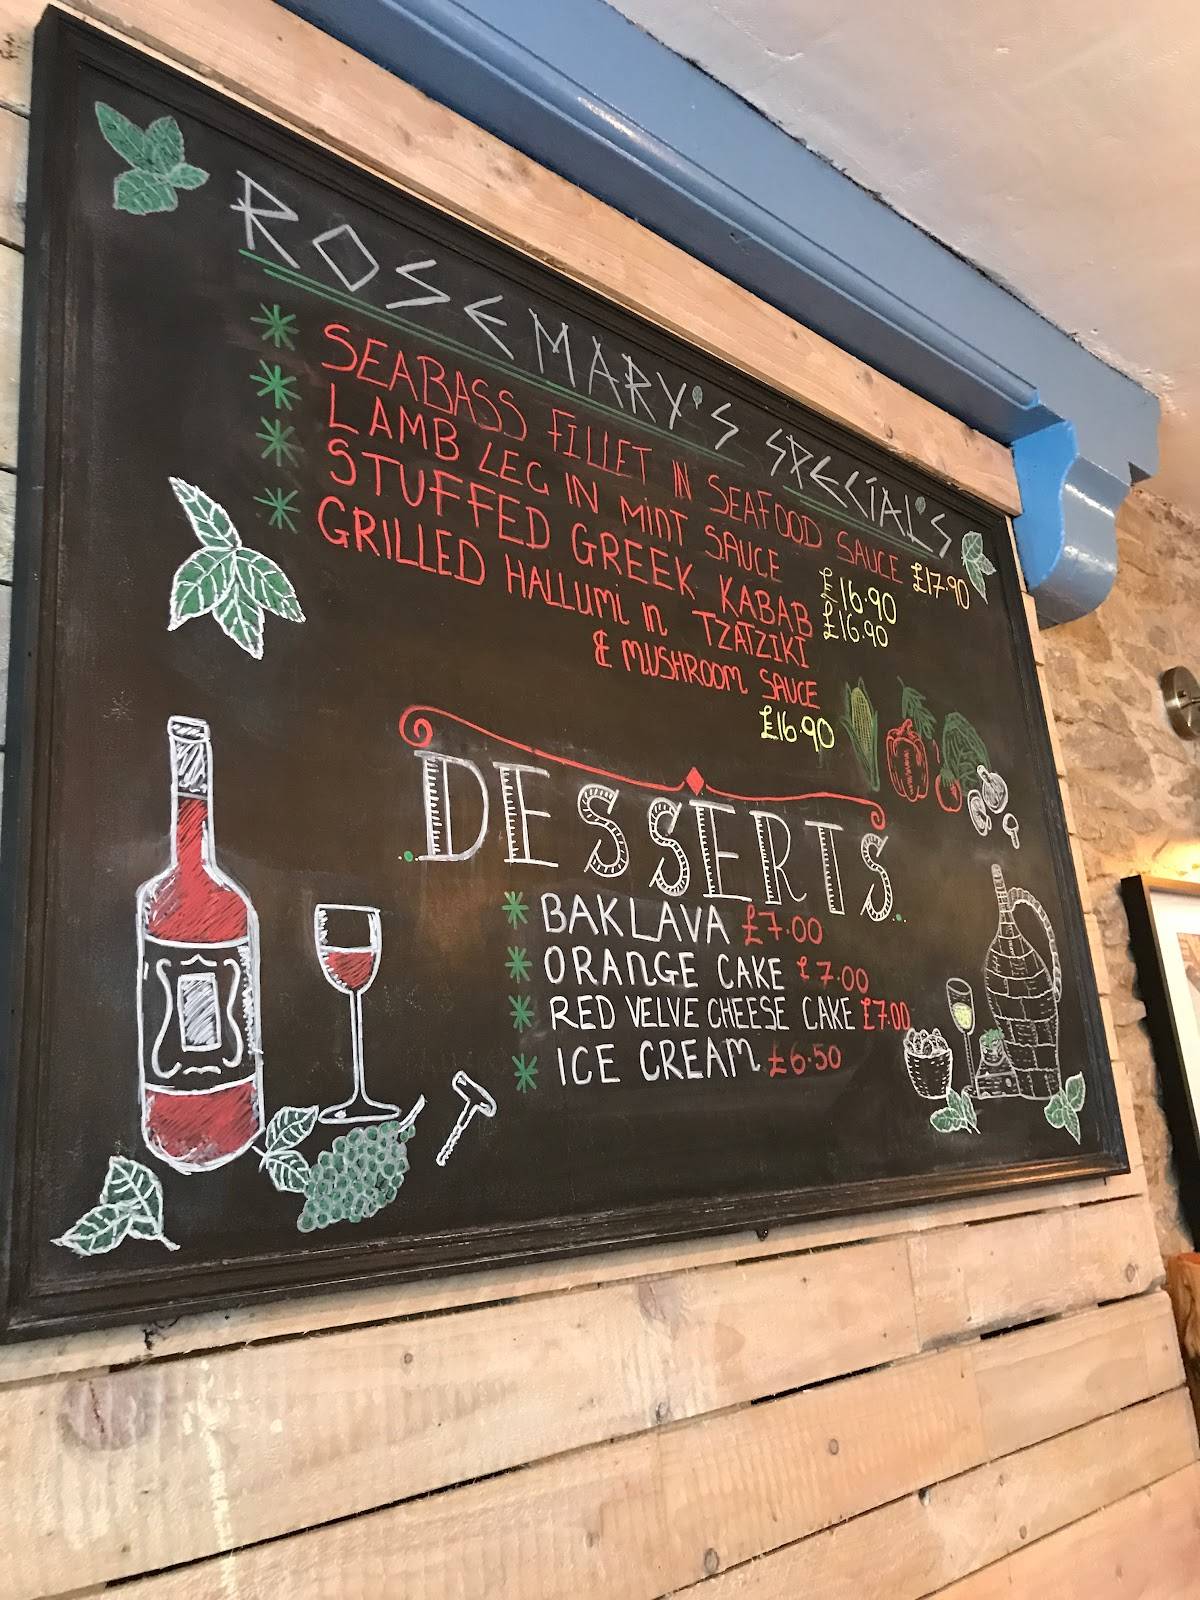 ROSEMARY'S SPECIAL'S
SEABASS FILLET IN SEAFOOD SAUCE £17.90
LAMB LEG IN MINT SAUCE £16.90
STUFFED GREEK KABAB £16.90
GRILLED HALLUMI in TZATZIKI
& MUSHROOM SAUCE
£16.90
DESSERTS
BAKLAVA £7.00
ORANGE CAKE £7.00
RED VELVE CHEESE CAKE £7.00
ICE CREAM £6.50